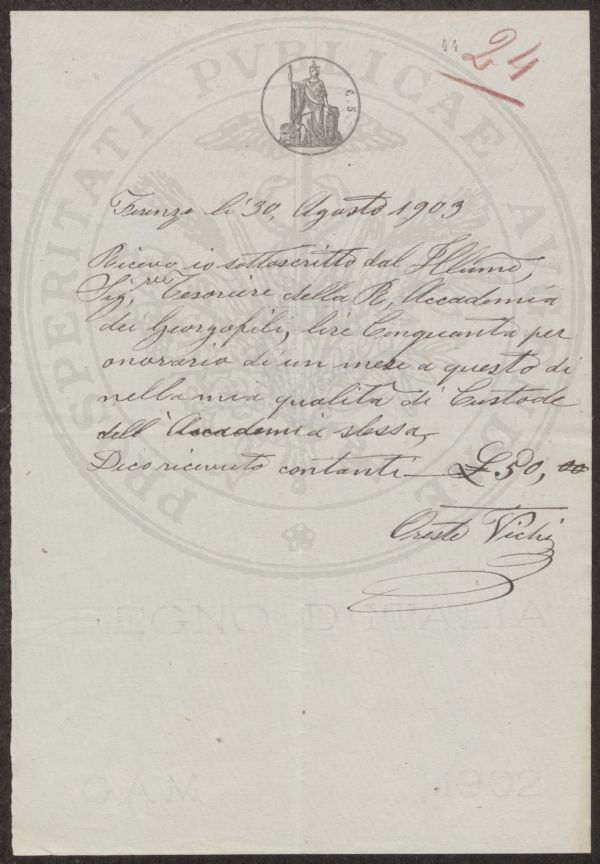 44
24
C. 5.
PROSPERITATI PVBLICAE AVGENDAE
Firenze li 30, Agosto 1903
Ricevo io sottoscritto dal Illumo,
Sig,re Tesoriere della R, Accademia
dei Georgofili, lire Cinquanta per
onorario di un mese a questo di
nella mia qualità di Custode
dell'Accademia stessa,
Dico ricevuto contanti — £ 50, 00
Oreste Vichi
REGNO D'ITALIA
1902